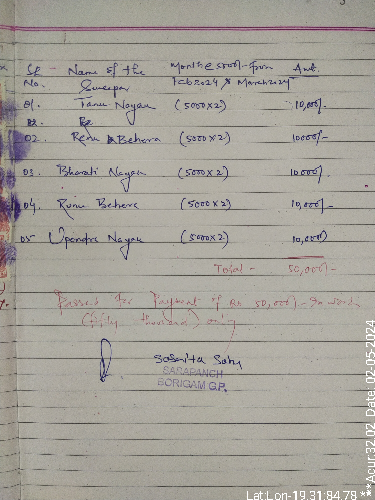 Sl Name of the Month @ 5000/- from Amt.
No. Sweeper Feb 2024 & March 2024
01. Tanu Nayak (5000x2) 10,000/-
02. Renu Behera (5000x2) 10000/-
03. Bharati Nayak (5000x2) 10000/-
04. Runu Behera (5000x2) 10,000/-
05 Upendra Nayak (5000x2) 10,000/-
Total - 50,000/-
Passed for Payment of Rs 50,000/- In words
(Fifty thousand) only
Sasmita Sahu
SARAPANCH
BORIGAM G.P.
Lat:Lon-19.31:84.78 *** Acur:32.02, Date: 02-05-2024